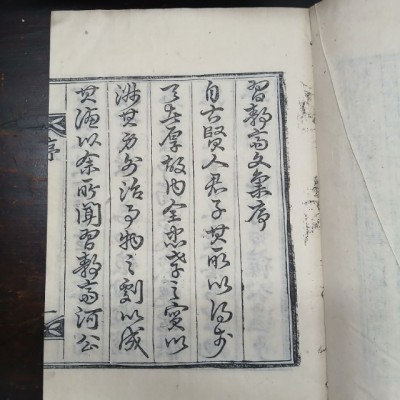 習齋文藁序
自古賢人君子其所以得於
天者厚故內全忠孝之實以
其方外治事物之劇以成
其以余所聞習齋河公
序
一